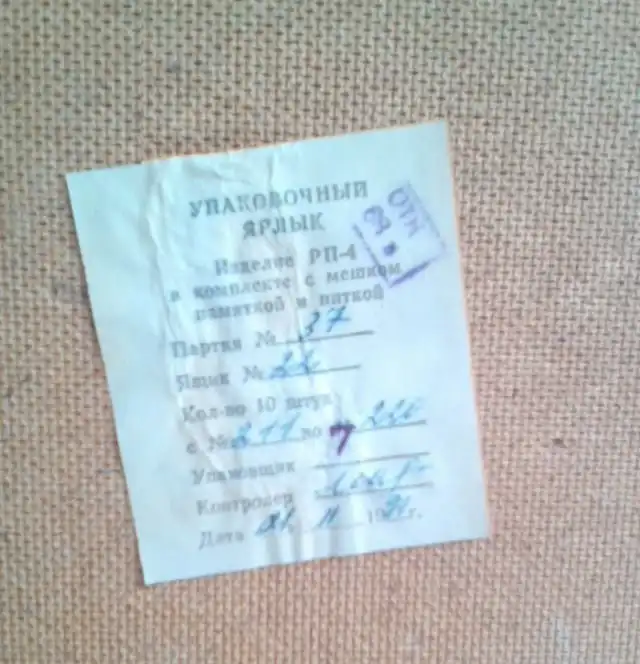 УПАКОВОЧНЫЙ
ЯРЛЫК
ОТК
Изделие РП-4
в комплекте с мешком
памяткой и ниткой
Партия № 37
Ящик № 22
Кол-во 10 штук
с № 211 по 220
Упаковщик 7
Контролер
Дата 21. 11 1991 г.